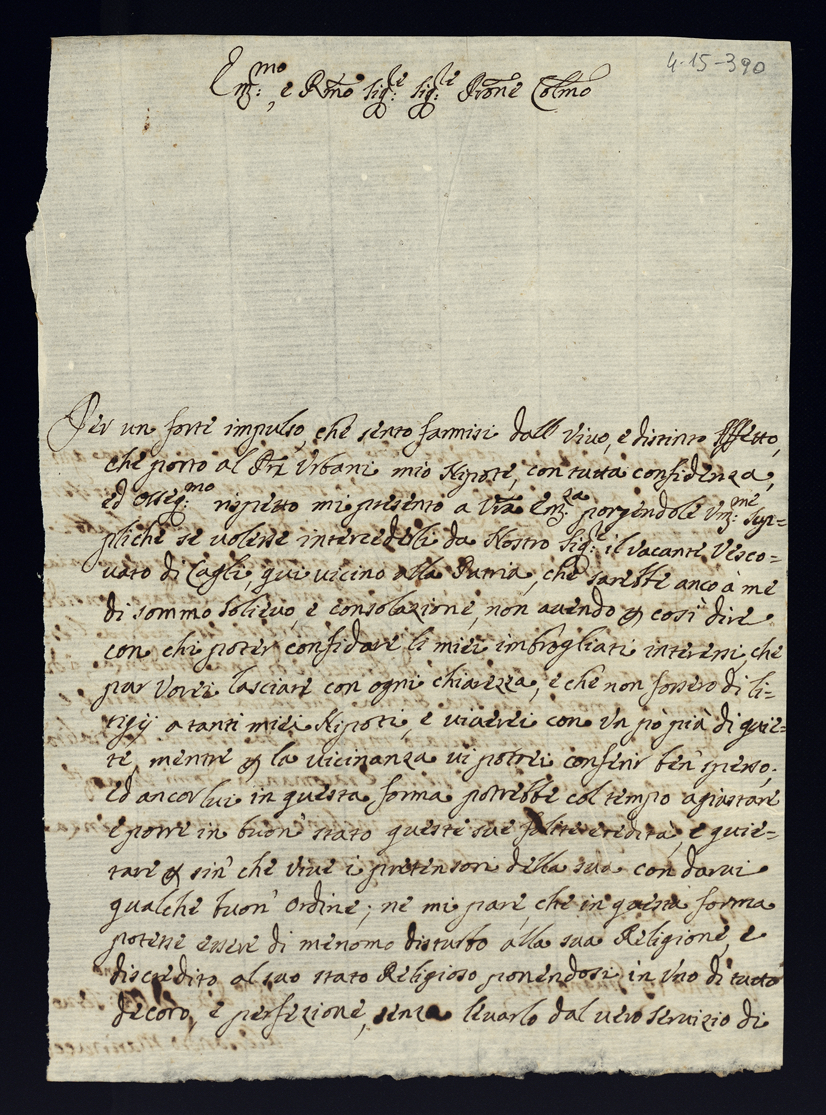 4-15-390
Em:mo, e Rmo Sig:re Sig:re Prone Colmo
Per un forte impulso, che sento farmisi dall vivo, e distinto affetto,
che porto al Urbani mio Nipote, con tutta confidenza,
ed osseq:mo rispetto mi presento a Vra Em:za porgendole Um:me Sup=
pliche se volesse intercederli da Nostro Sig:re il vacante Vesco=
vato di Cagli, qui vicino alla Patria, che sarebbe anco à me
di sommo solievo, e consolazione, non avendo così dire
con chi poter confidare li miei imbrogliati interessi, che
pur vorei lasciare con ogni chiarezza, e che non fossero di li=
tigij a tanti miei Nipoti, e viverei con un pò più di quie=
te, mentre la vicinanza vi potrei conferir ben' spesso;
ed ancor lui in questa forma potrebbe col tempo agiustare
e porre in buon' stato queste sue eredita, e quie=
tare sin' che vive i pretensori della sua con darvi
qualche buon' ordine; ne mi pare, che in questa forma
potesse essere di menomo disturbo alla sua Religione, e
discredito al suo stato Religioso ponendosi in uno di tutto
decoro, e perfezione, senza levarlo dal vero servizio di